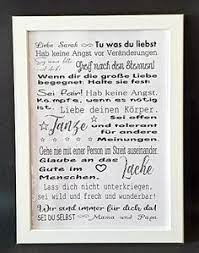 Liebe Sarah Tu was du liebst
Hab keine Angst vor Veränderungen
Sag was du fühlst Greif nach den Sternen!
Wenn dir die große Liebe
begegnet Halte sie fest!
Sei Fair! Hab keine Angst.
Kämpfe, wenn es nötig
ist. Liebe deinen Körper.
Tanze Sei offen
und tolerant
für andere
Meinungen
Gehe nie mit einer Person im Streit auseinander
Glaube an das
Gute im
Menschen. Lache
Lass dich nicht unterkriegen,
sei wild und frech und wunderbar!
Wir sind immer für dich da!
SEI DU SELBST Mama und Papa